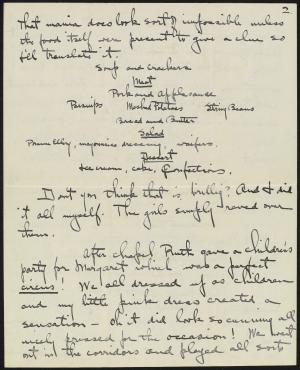 2
That menu does look sort of impossible unless
the food itself were present to give a clue so
I'll translate it.
Soup and crackers
Meat
Pork and Applesauce
Parsnips Mashed Potatoes String Beans
Bread and Butter
Salad
Prune Elby, mayonnaise dressing, waifers.
Dessert
Ice cream, cake, confections.
Don't you think that is brilly? And I did
it all myself. The girls simply raved over
them.
After chapel, Ruth gave a children's
party for Margaret which was a perfect
circus! We all dressed up as children
and my little pink dress created a
sensation – oh it did look so cunning all
nicely pressed for the occasion! We went
out in the corridors and played all sorts